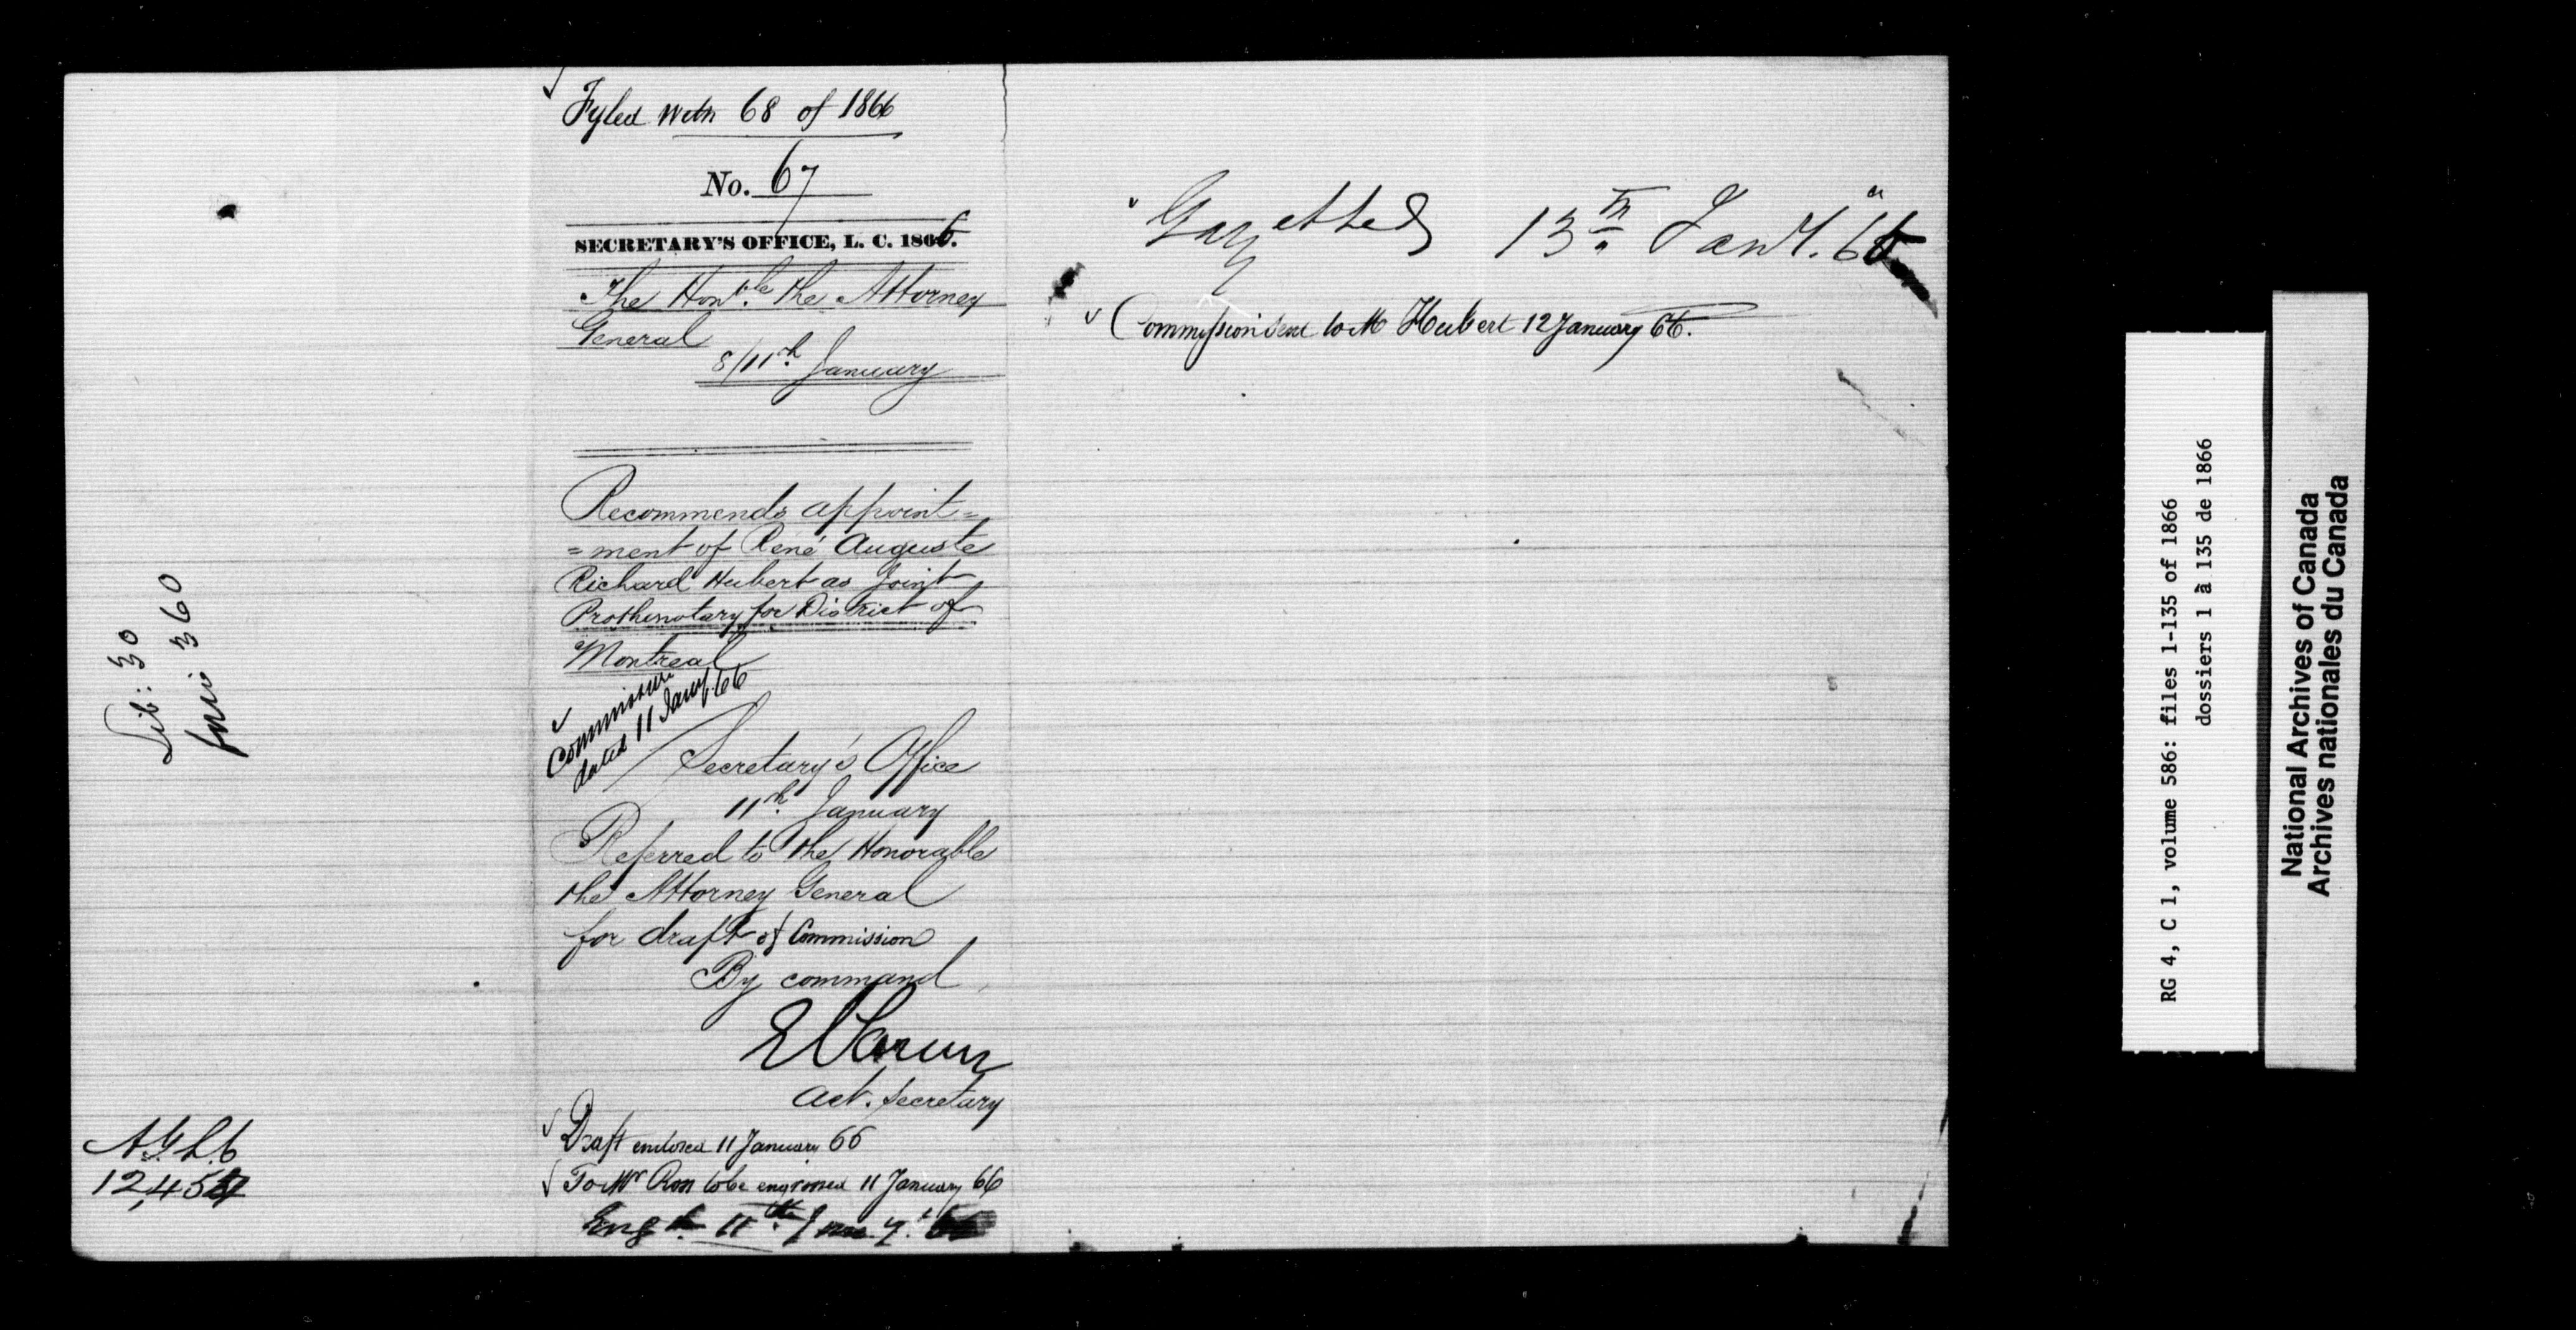 Lib: 30
folio 360
A.G.L.C
12,457
Fyled with 68 of 1866
No. 67
SECRETARY'S OFFICE, L. C. 1866.
The Honble. the Attorney
General
8/11th. January
Recommends appoint=
=ment of René Auguste
Richard Hubert as Joint
Prothonotary for District of
Montreal
Commission
dated 11 Jany. 66
Secretary's Office
11th. January
Referred to the Honorable
the Attorney General
for draft of Commission
By command
Act. Secretary
Draft enclosed 11 January 66
To Mr Ross to be engrossed 11 January 66
Engd. 11th. Jany. 66
Gazetted 13th Jany. 66
Commission sent to M Hubert 12 January 66.
RG 4, C 1, volume 586: files 1-135 of 1866
dossiers 1 à 135 de 1866
National Archives of Canada
Archives nationales du Canada